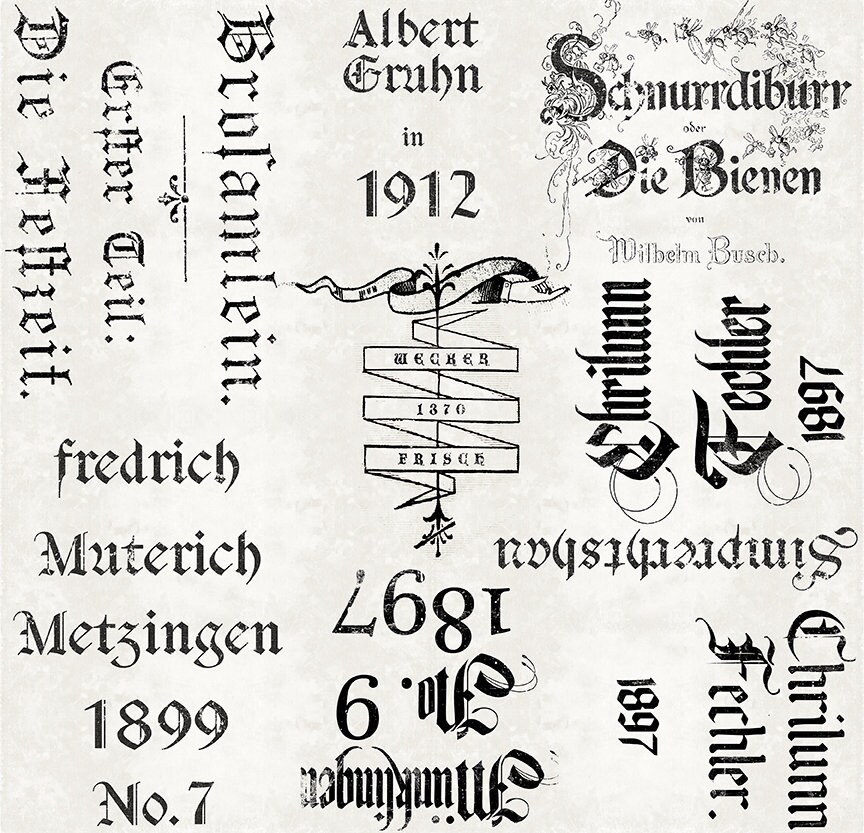 Broſamlein.
Erſter Teil:
Die Feſtzeit.
Albert
Gruhn
in
1912
Schnurrdiburr
oder
Die Bienen
von
Wilhelm Busch.
WECKER
1370
FRISCH
Chrilunn
Fechler
1897
fredrich
Muterich
Metzingen
1899
No. 7
Münklingen
No. 9
1897
Chrilunn
Fechler.
1897